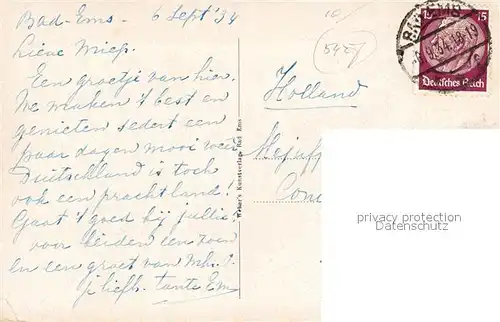 Bad-Ems. 6 Sept '34
Lieve Miep.
Een groetje van hier.
We maken 't best en
genieten sedert een
paar dagen mooi weer
Duitschland is toch
ook een prachtland!
Gaat 't goed bij jullie?
voor beiden een zoen
en een groet van Mhr.
je liefh. tante Em
Weber's Kunstverlag, Bad Ems
10
5427
Holland
Mejuff
15
Deutsches Reich
privacy protection
Datenschutz